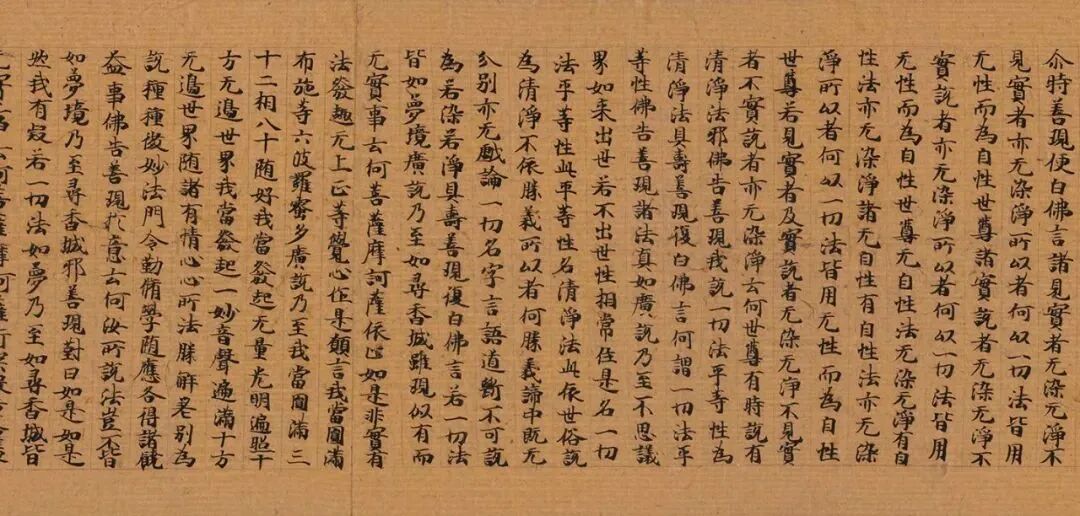 尒時善現便白佛言諸見實者无染无淨不
見實者亦无染淨所以者何以一切法皆用
无性而為自性世尊諸實說者无染无淨不
實說者亦无染淨所以者何以一切法皆用
无性而為自性世尊无自性法无染无淨有自
性法亦无染淨諸无自性有自性法亦无染
淨所以者何以一切法皆用无性而為自性
世尊若見實者及實說者无染无淨不見實
者不實說者亦无染淨云何世尊有時說有
清淨法邪佛告善現我說一切法平等性為
清淨法具壽善現復白佛言何謂一切法平
等性佛告善現諸法真如廣說乃至不思議
界如來出世若不出世性相常住是名一切
法平等性此平等性名清淨法此依世俗說
為清淨不依勝義所以者何勝義諦中既无
分別亦无戲論一切名字言語道斷不可說
為若染若淨具壽善現復白佛言若一切法
皆如夢境廣說乃至如尋香城雖現似有而
无實事云何菩薩摩訶薩依止如是非實有
法發趣无上正等覺心作是願言我當圓滿
布施等六波羅蜜多廣說乃至我當圓滿三
十二相八十随好我當發起无量光明遍照十
方无邊世界我當發起一妙音聲遍滿十方
无邊世界随諸有情心心所法勝解差別為
說種種微妙法門令勤脩學随應各得諸饒
益事佛告善現於意云何汝所說法豈不皆
如夢境乃至尋香城邪善現對曰如是如是
然我有疑若一切法如夢乃至如尋香城皆